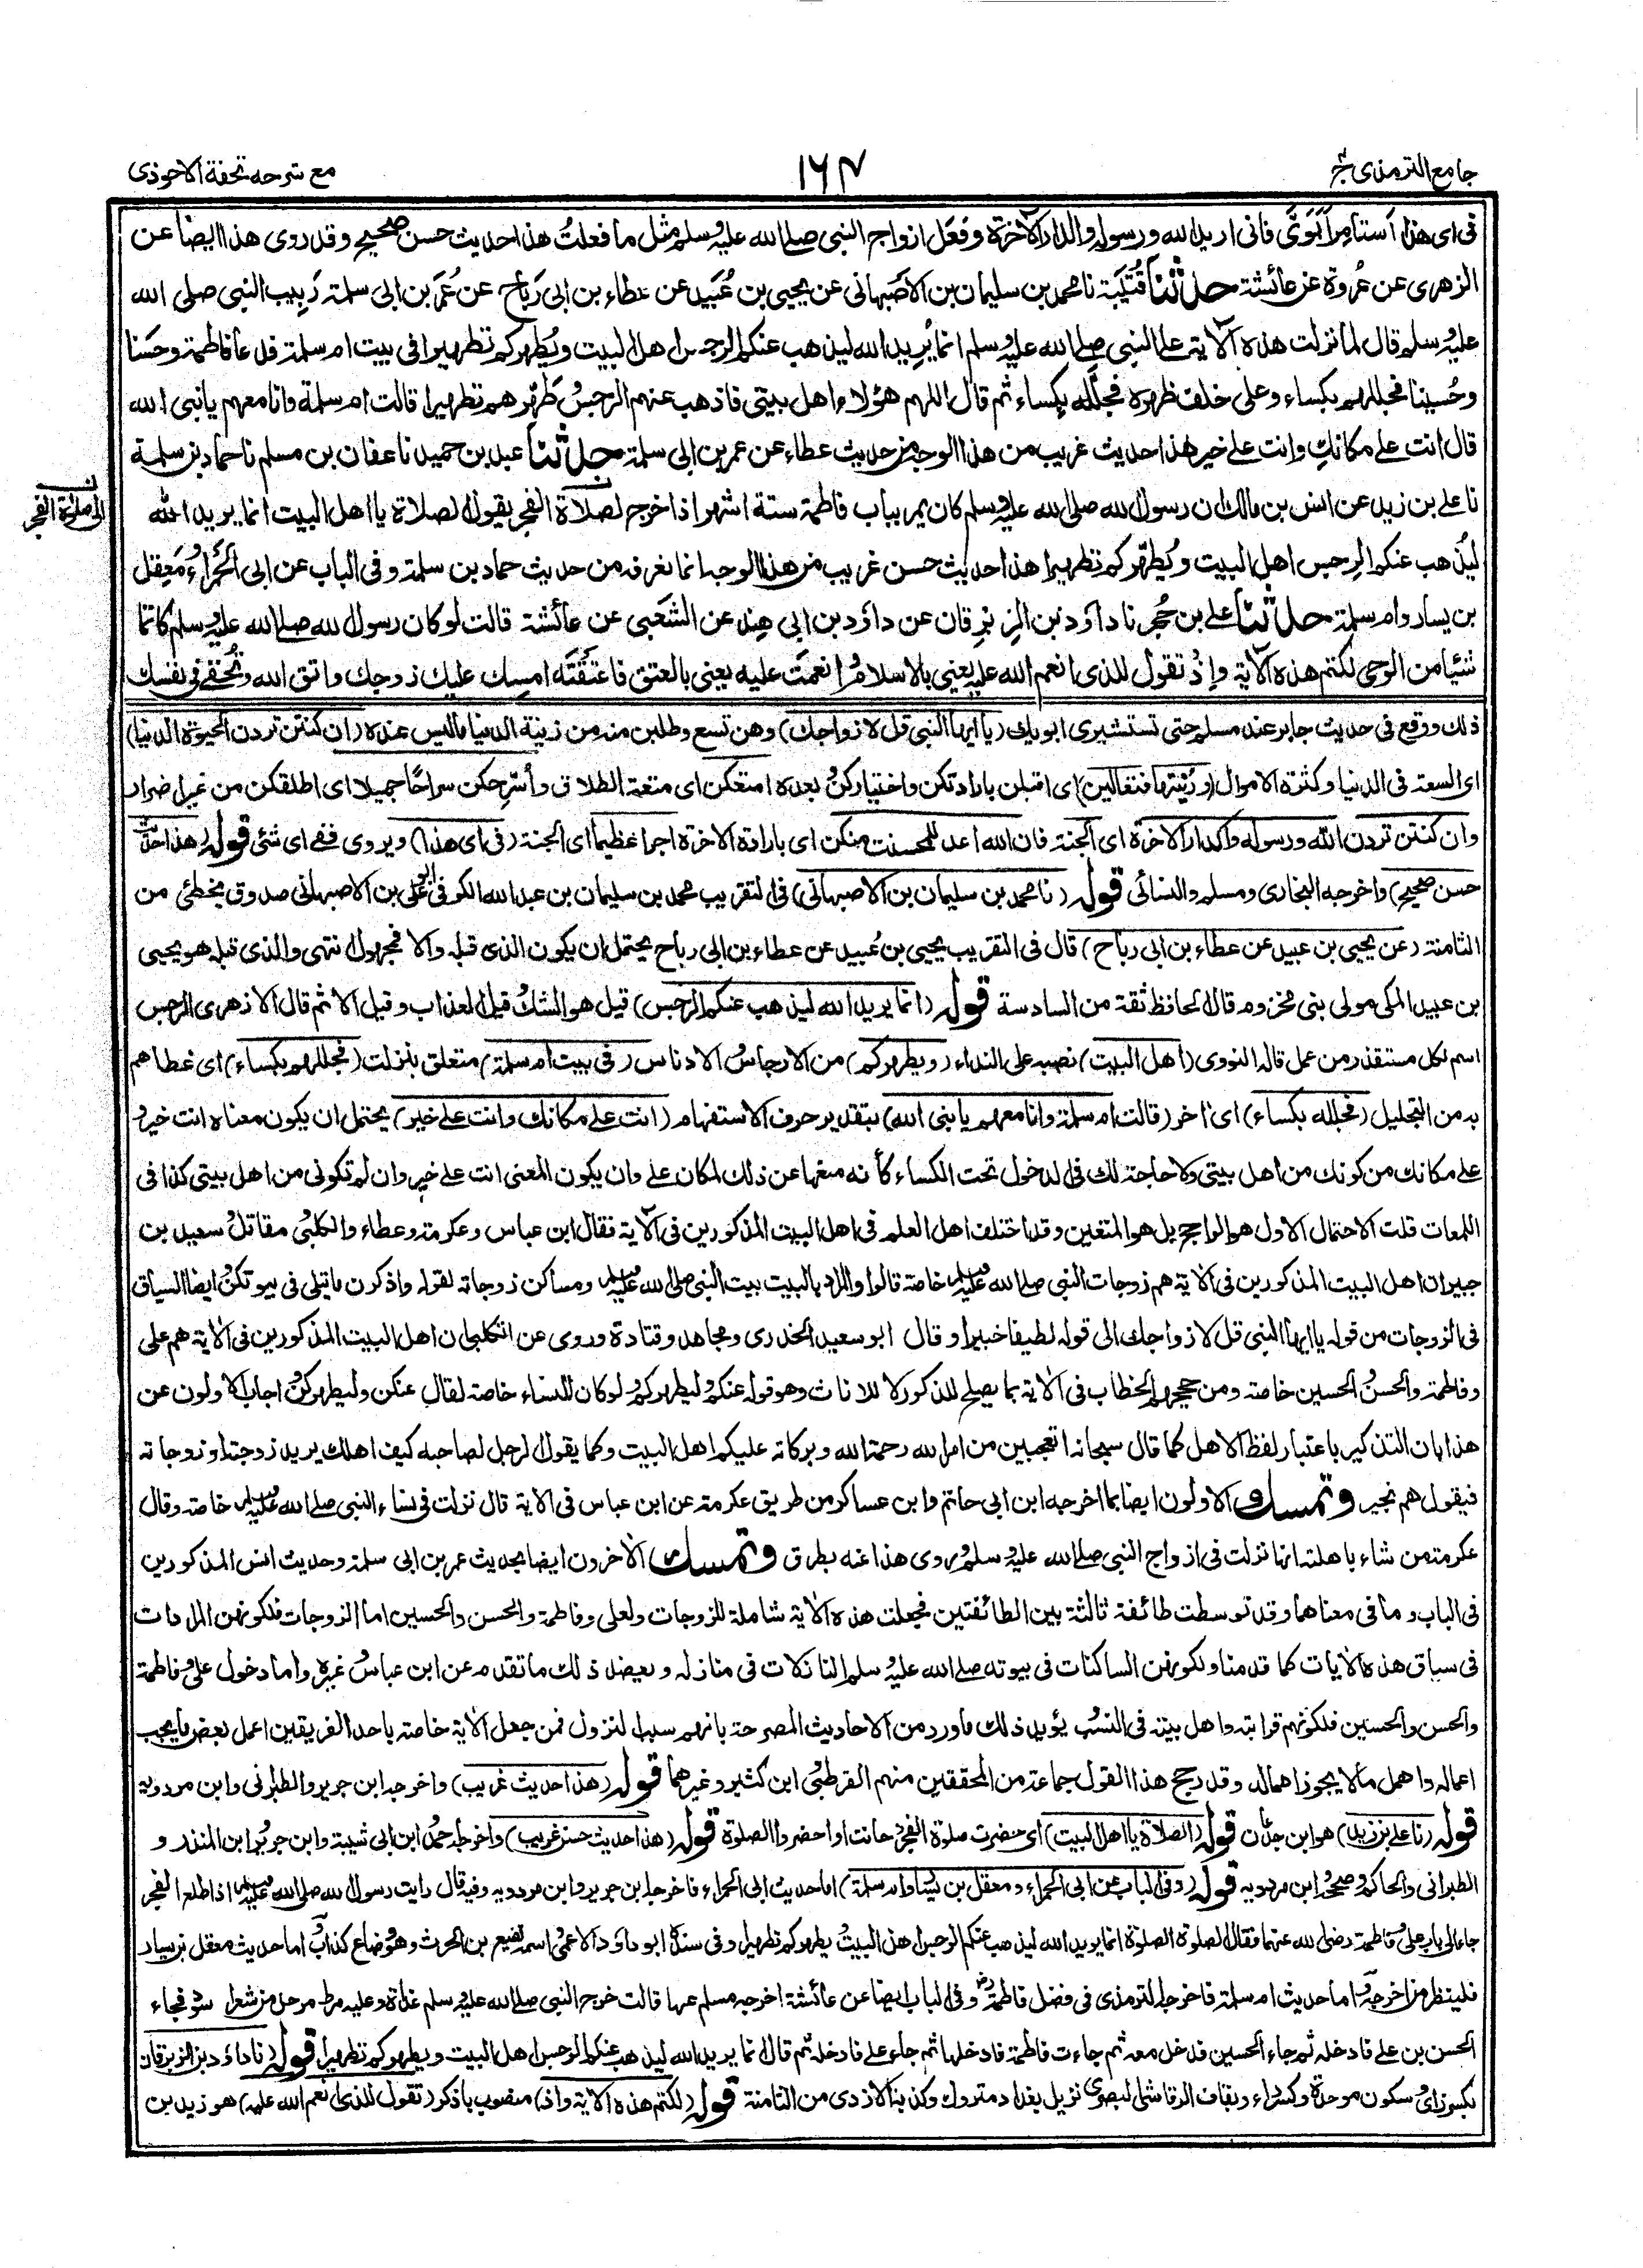 جامع الترمذی ج۴
۱۶۴
مع شرحه تحفة الاحوذی
فی ای هذا أستأمر أبوی فانی ارید الله ورسوله والدار الآخرة وفعل ازواج النبی صلی الله علیه وسلم مثل ما فعلت هذا حدیث حسن صحیح وقد روی هذا ایضا عن
الزهری عن عروة عن عائشة حدثنا قتیبة نا محمد بن سلیمان بن الاصبهانی عن یحیی بن عبید عن عطاء بن ابی رباح عن عمر بن ابی سلمة ربیب النبی صلی الله
علیه وسلم قال لما نزلت هذه الآیة علی النبی صلی الله علیه وسلم انما یرید الله لیذهب عنکم الرجس اهل البیت ویطهرکم تطهیرا فی بیت ام سلمة فدعا فاطمة وحسنا
وحسینا فجللهم بکساء وعلی خلف ظهره فجلله بکساء ثم قال اللهم هؤلاء اهل بیتی فاذهب عنهم الرجس وطهرهم تطهیرا قالت ام سلمة وانا معهم یا نبی الله
قال انت علی مکانك وانت علی خیر هذا حدیث غریب من هذا الوجه من حدیث عطاء عن عمر بن ابی سلمة حدثنا عبد بن حمید نا عفان بن مسلم نا حماد بن سلمة
نا علی بن زید عن انس بن مالك ان رسول الله صلی الله علیه وسلم کان یمر بباب فاطمة ستة اشهر اذا خرج لصلاة الفجر یقول الصلاة یا اهل البیت انما یرید الله
الی صلوة الفجر
لیذهب عنکم الرجس اهل البیت ویطهرکم تطهیرا هذا حدیث حسن غریب من هذا الوجه انما نعرفه من حدیث حماد بن سلمة وفی الباب عن ابی الحمراء ومعقل
بن یسار وام سلمة حدثنا علی بن حجر نا داؤد بن الزبرقان عن داؤد بن ابی هند عن الشعبی عن عائشة قالت لو کان رسول الله صلی الله علیه وسلم کاتما
شیئا من الوحی لکتم هذه الآیة واذ تقول للذی انعم الله علیه یعنی بالاسلام وانعمت علیه یعنی بالعتق فاعتقته امسك علیك زوجك واتق الله وتخفی فی نفسك
ذلك ووقع فی حدیث جابر عند مسلم حتی تستشیری ابویك (یا ایها النبی قل لازواجك) وهن تسع وطلبن منه من زینة الدنیا ما لیس عنده (ان کنتن تردن الحیوة الدنیا)
ای السعة فی الدنیا وکثرة الاموال (وزینتها فتعالین) ای اقبلن بارادتکن واختیارکن بعده امتعکن ای متعة الطلاق وأسرحکن سراحا جمیلا ای اطلقکن من غیر اضرار
وان کنتن تردن الله ورسوله والدار الآخرة ای الجنة فان الله اعد للمحسنت منکن ای بارادة الآخرة اجرا عظیما ای الجنة (فی ای هذا) ویروی ففی ای شئ قوله (هذا حدیث
حسن صحیح) واخرجه البخاری ومسلم والنسائی قوله (نا محمد بن سلیمان بن الاصبهانی) فی التقریب محمد بن سلیمان بن عبد الله الکوفی ابو علی بن الاصبهانی صدوق یخطئ من
الثامنة (عن یحیی بن عبید عن عطاء بن ابی رباح) قال فی التقریب یحیی بن عبید عن عطاء بن ابی رباح یحتمل ان یکون الذی قبله والا فمجهول انتهی والذی قبله هو یحیی
بن عبید المکی مولی بنی مخزوم قال الحافظ ثقة من السادسة قوله (انما یرید الله لیذهب عنکم الرجس) قیل هو الشك وقیل العذاب وقیل الاثم قال الازهری الرجس
اسم لکل مستقذر من عمل قاله النووی (اهل البیت) نصبه علی النداء (ویطهرکم) من الارجاس والادناس (فی بیت ام سلمة) متعلق بنزلت (فجللهم بکساء) ای غطاهم
به من التجلیل (فجلله بکساء) ای آخر (قالت ام سلمة وانا معهم یا نبی الله) بتقدیر حرف الاستفهام (انت علی مکانك وانت علی خیر) یحتمل ان یکون معناه انت خیر و
علی مکانك من کونك من اهل بیتی ولا حاجة لك فی الدخول تحت الکساء کأنه منعها عن ذلك لمکان علی وان یکون المعنی انت علی خیر وان لم تکونی من اهل بیتی کذا فی
اللمعات قلت الاحتمال الاول هو الراجح بل هو المتعین وقد اختلف اهل العلم فی اهل البیت المذکورین فی الآیة فقال ابن عباس وعکرمة وعطاء والکلبی ومقاتل وسعید بن
جبیر ان اهل البیت المذکورین فی الآیة هم زوجات النبی صلی الله علیه وسلم خاصة قالوا والمراد بالبیت بیت النبی صلی الله علیه وسلم ومساکن زوجاته لقوله واذکرن ما یتلی فی بیوتکن وایضا السیاق
فی الزوجات من قوله یا ایها النبی قل لازواجك الی قوله لطیفا خبیرا وقال ابو سعید الخدری ومجاهد وقتادة وروی عن الکلبی ان اهل البیت المذکورین فی الآیة هم علی
وفاطمة والحسن والحسین خاصة ومن حججهم الخطاب فی الآیة بما یصلح للذکور لا للاناث وهو قوله عنکم ولیطهرکم ولو کان للنساء خاصة لقال عنکن ولیطهرکن واجاب الاولون عن
هذا بان التذکیر باعتبار لفظ الاهل کما قال سبحانه اتعجبین من امر الله رحمة الله وبرکاته علیکم اهل البیت وکما یقول الرجل لصاحبه کیف اهلك یرید زوجته او زوجاته
فیقول هم بخیر وتمسك الاولون ایضا بما اخرجه ابن ابی حاتم وابن عساکر من طریق عکرمة عن ابن عباس فی الآیة قال نزلت فی نساء النبی صلی الله علیه وسلم خاصة وقال
عکرمة من شاء باهلته انها نزلت فی ازواج النبی صلی الله علیه وسلم وروی هذا عنه بطرق وتمسك الآخرون ایضا بحدیث عمر بن ابی سلمة وحدیث انس المذکورین
فی الباب وما فی معناهما وقد توسطت طائفة ثالثة بین الطائفتین فجعلت هذه الآیة شاملة للزوجات ولعلی وفاطمة والحسن والحسین اما الزوجات فلکونهن المرادات
فی سیاق هذه الآیات کما قدمنا ولکونهن الساکنات فی بیوته صلی الله علیه وسلم النازلات فی منازله ویعضد ذلك ما تقدم عن ابن عباس وغیره واما دخول علی وفاطمة
والحسن والحسین فلکونهم قرابته واهل بیته فی النسب ویؤید ذلك ما ورد من الاحادیث المصرحة بانهم سبب النزول فمن جعل الآیة خاصة باحد الفریقین اعمل بعض ما یجب
اعماله واهمل ما لا یجوز اهماله وقد رجح هذا القول جماعة من المحققین منهم القرطبی وابن کثیر وغیرهما قوله (هذا حدیث غریب) واخرجه ابن جریر والطبرانی وابن مردویه
قوله (نا علی بن زید) هو ابن جدعان قوله (الصلاة یا اهل البیت) ای حضرت صلوة الفجر وحانت او احضروا الصلوة قوله (هذا حدیث حسن غریب) واخرجه احمد وابن ابی شیبة وابن جریر وابن المنذر و
الطبرانی والحاکم وصححه وابن مردویه قوله (وفی الباب عن ابی الحمراء ومعقل بن یسار وام سلمة) اما حدیث ابی الحمراء فاخرجه ابن جریر وابن مردویه وفیه قال رایت رسول الله صلی الله علیه وسلم اذا طلع الفجر
جاء الی باب علی وفاطمة رضی الله عنهما فقال الصلوة الصلوة انما یرید الله لیذهب عنکم الرجس اهل البیت ویطهرکم تطهیرا وفی سنده ابو داؤد الاعمی اسمه نفیع بن الحرث وهو وضاع کذاب واما حدیث معقل بن یسار
فلینظر من اخرجه واما حدیث ام سلمة فاخرجه الترمذی فی فضل فاطمة وفی الباب ایضا عن عائشة اخرجه مسلم عنها قالت خرج النبی صلی الله علیه وسلم غداة وعلیه مرط مرحل من شعر اسود فجاء
الحسن بن علی فادخله ثم جاء الحسین فدخل معه ثم جاءت فاطمة فادخلها ثم جاء علی فادخله ثم قال انما یرید الله لیذهب عنکم الرجس اهل البیت ویطهرکم تطهیرا قوله (نا داؤد بن الزبرقان
بکسر زای وسکون موحدة وکسر راء وبقاف الرقاشی البصری نزیل بغداد متروك وکذبه الازدی من الثامنة قوله (لکتم هذه الآیة واذ) منصوب باذکر (تقول للذی انعم الله علیه) هو زید بن